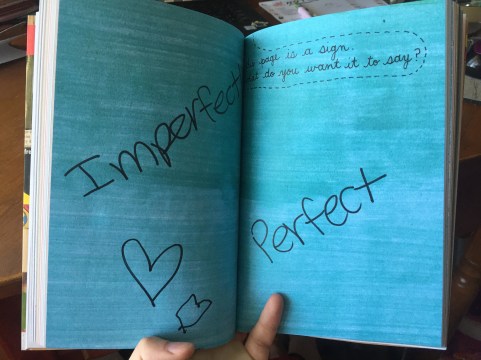 Imperfect
page is a sign.
do you want it to say?
Perfect